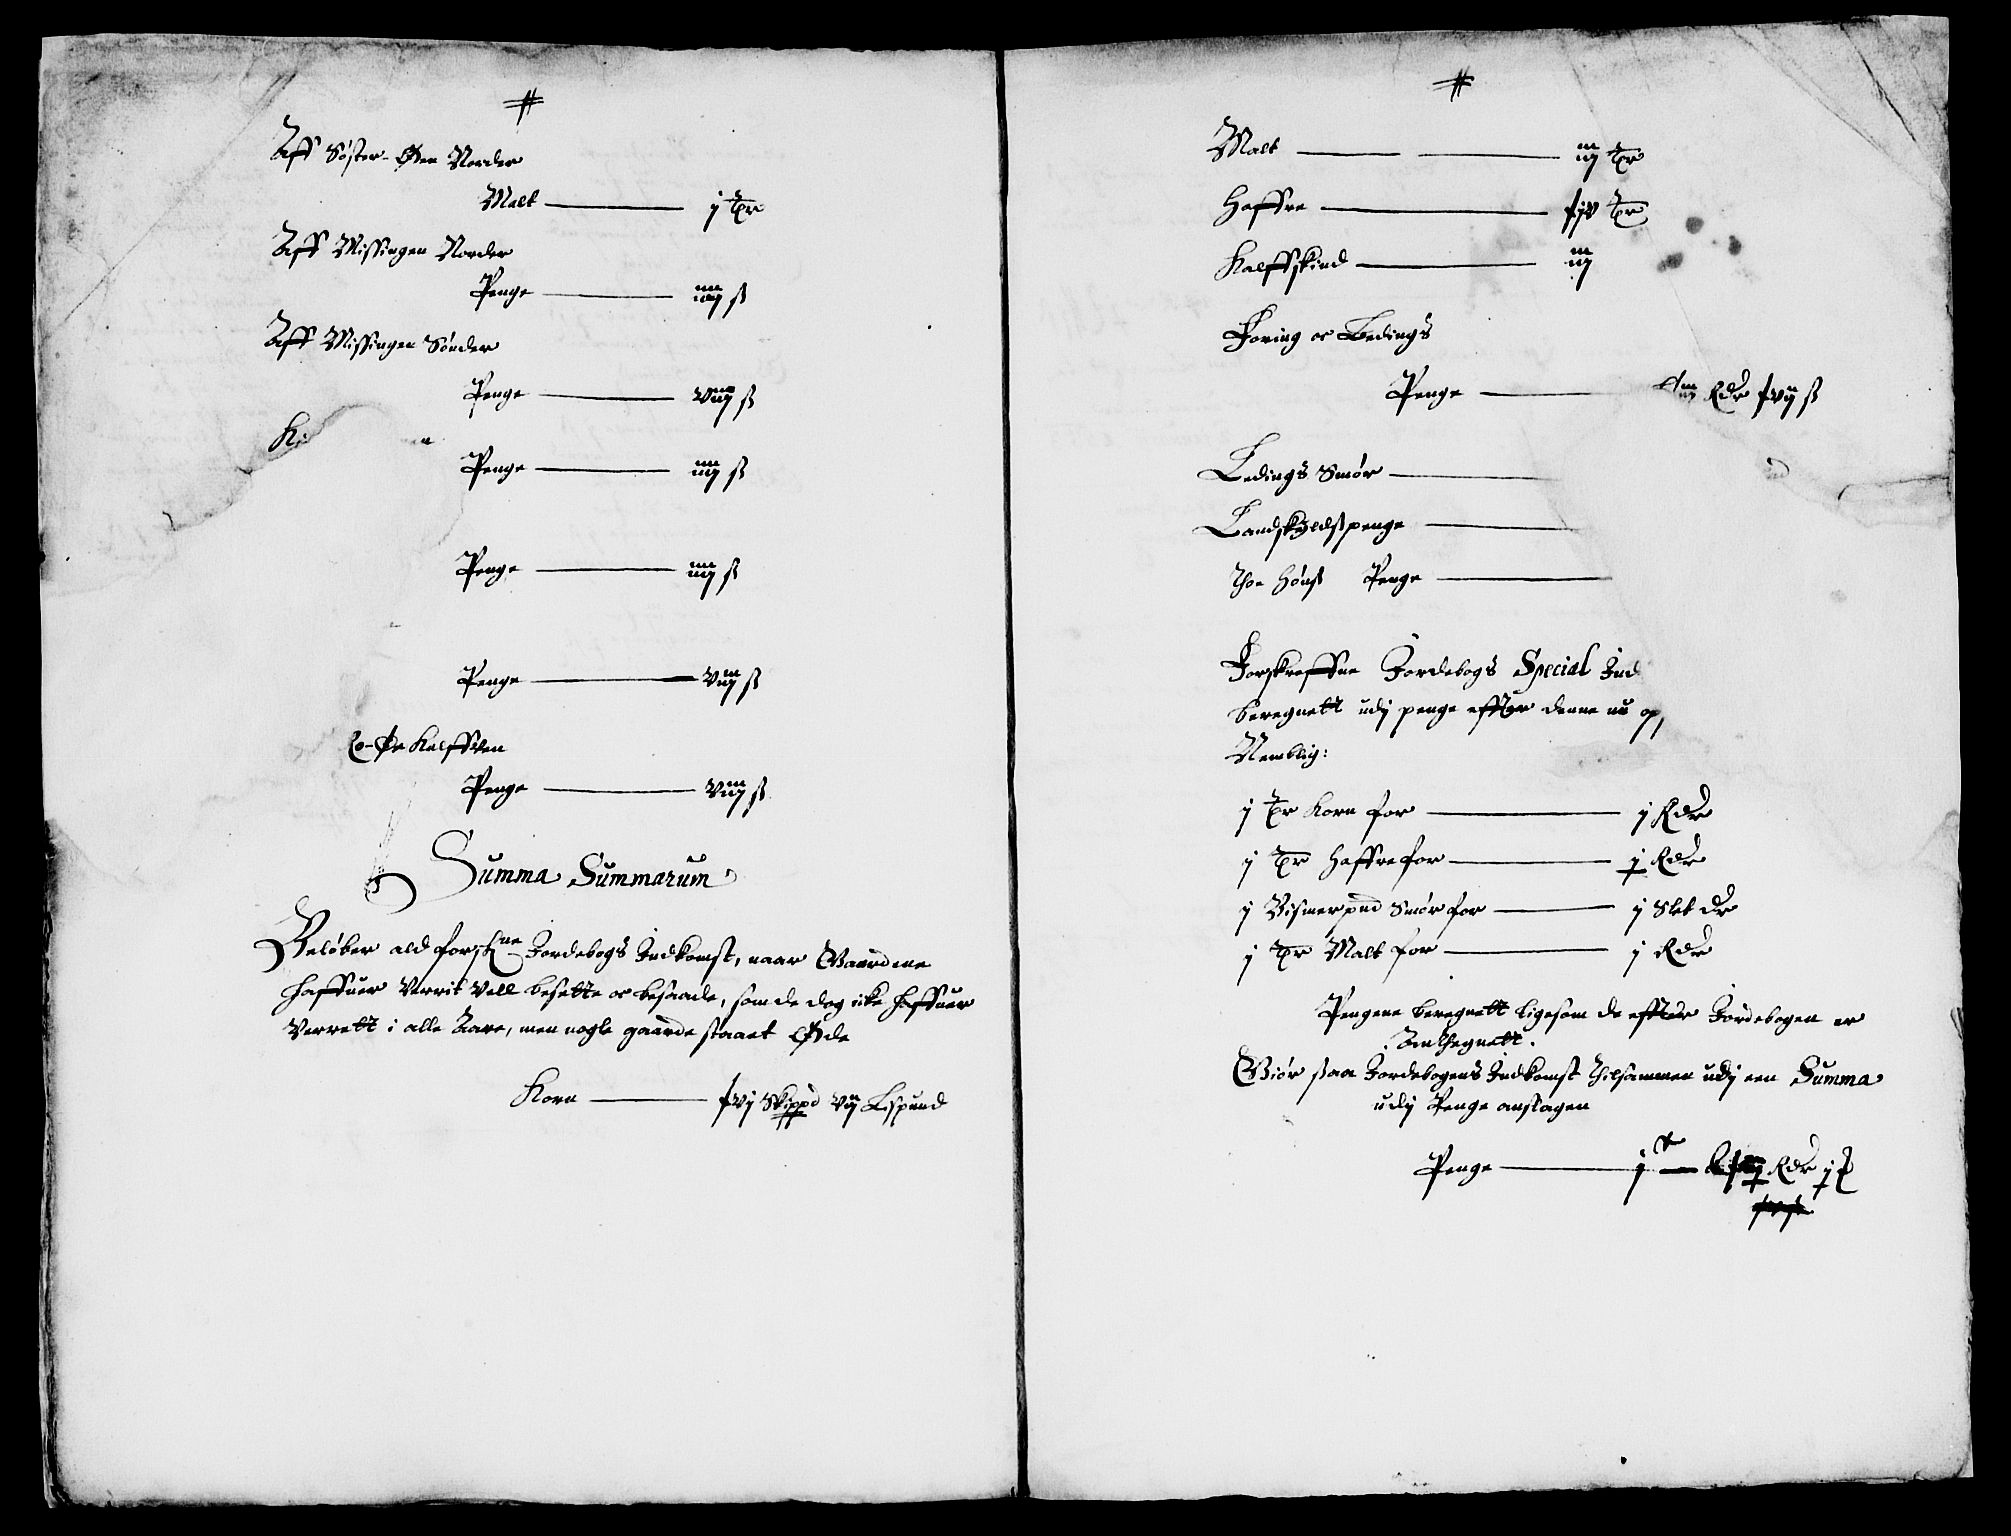 #
Aff Søster-Øen Norder
Malt — j Tpr
Aff Missingen Norder
Penge — ß
Aff Missingen Sønder
Penge — ß
Penge — ß
Penge — ß
Penge — ß
Penge — ß
Summa Summarum
Beløber ald forskne Jordebogs Indkomst, naar Gaardene
haffuer Verrit Vell besette oc besaade, som de dog icke haffuer
Verrett i alle Aare, men nogle gaarde staaet Øde
Korn — Skippd Lispund
#
Malt — Tpr
Haffre — Tpr
Kalffskind —
Foring oc Ledings
Penge — Rdr ß
Ledings Smør —
Landskyldspenge —
Penge —
Forskreffne Jordebogs Special Ind
beregnett udj penge effter denne
Nemblig:
j Tpr Korn for — j Rdr
j Tpr Haffre for — j Rdr
j Bismerpnd Smør for — j Slet dr
j Tpr Malt for — j Rdr
Pengene beregnett ligesom de effter Jordebogen er
Anthegnett.
Giør saa Jordebogens Indkomst thilsammen udj een Summa
udj Penge anslagen
Penge — Rdr